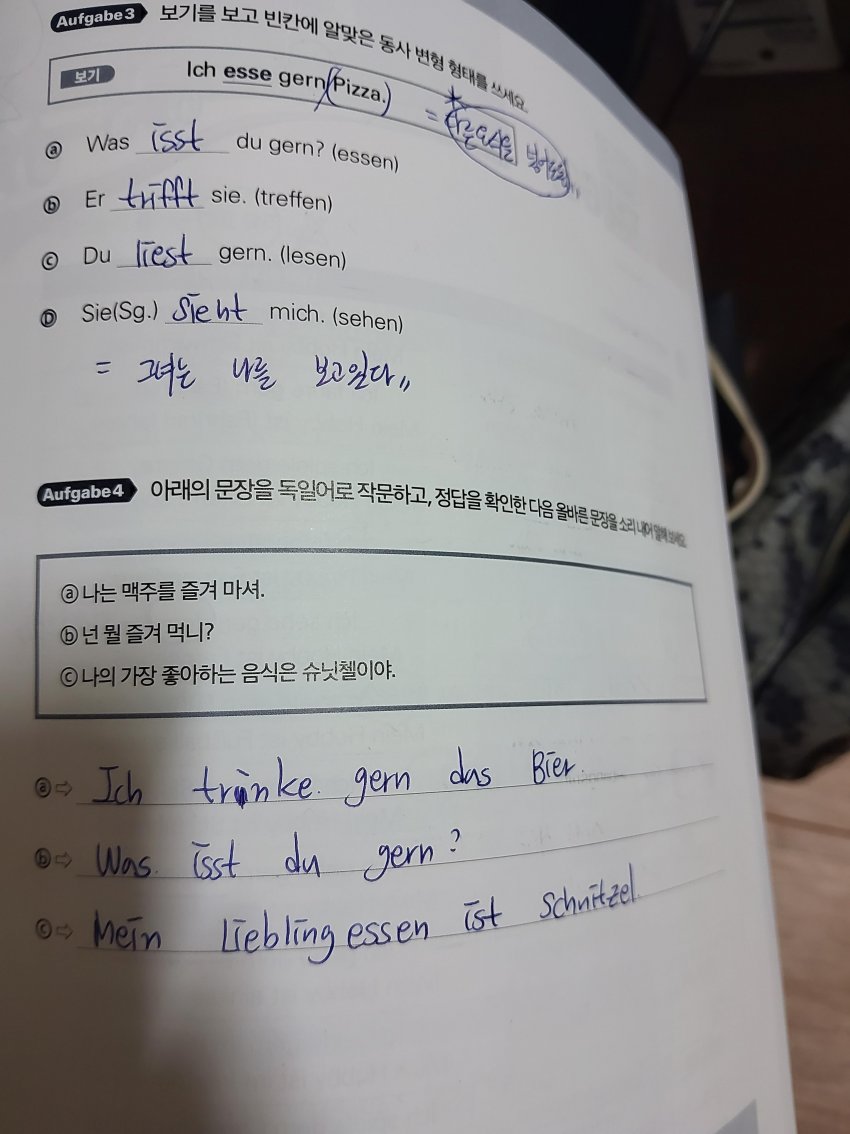 Aufgabe3 보기를 보고 빈칸에 알맞은 동사 변형 형태를 쓰세요.
보기 Ich esse gern (Pizza.)
= 다른 음식을
ⓐ Was isst du gern? (essen)
ⓑ Er trifft sie. (treffen)
ⓒ Du liest gern. (lesen)
ⓓ Sie(Sg.) sieht mich. (sehen)
= 그녀는 나를 보고있다
Aufgabe4 아래의 문장을 독일어로 작문하고, 정답을 확인한 다음 올바른 문장을 소리 내어 말해 보세요.
ⓐ 나는 맥주를 즐겨 마셔.
ⓑ 넌 뭘 즐겨 먹니?
ⓒ 나의 가장 좋아하는 음식은 슈닛첼이야.
ⓐ⇨ Ich trinke. gern das Bier.
ⓑ⇨ Was. isst du gern?
ⓒ⇨ Mein Liebling essen ist Schnitzel.